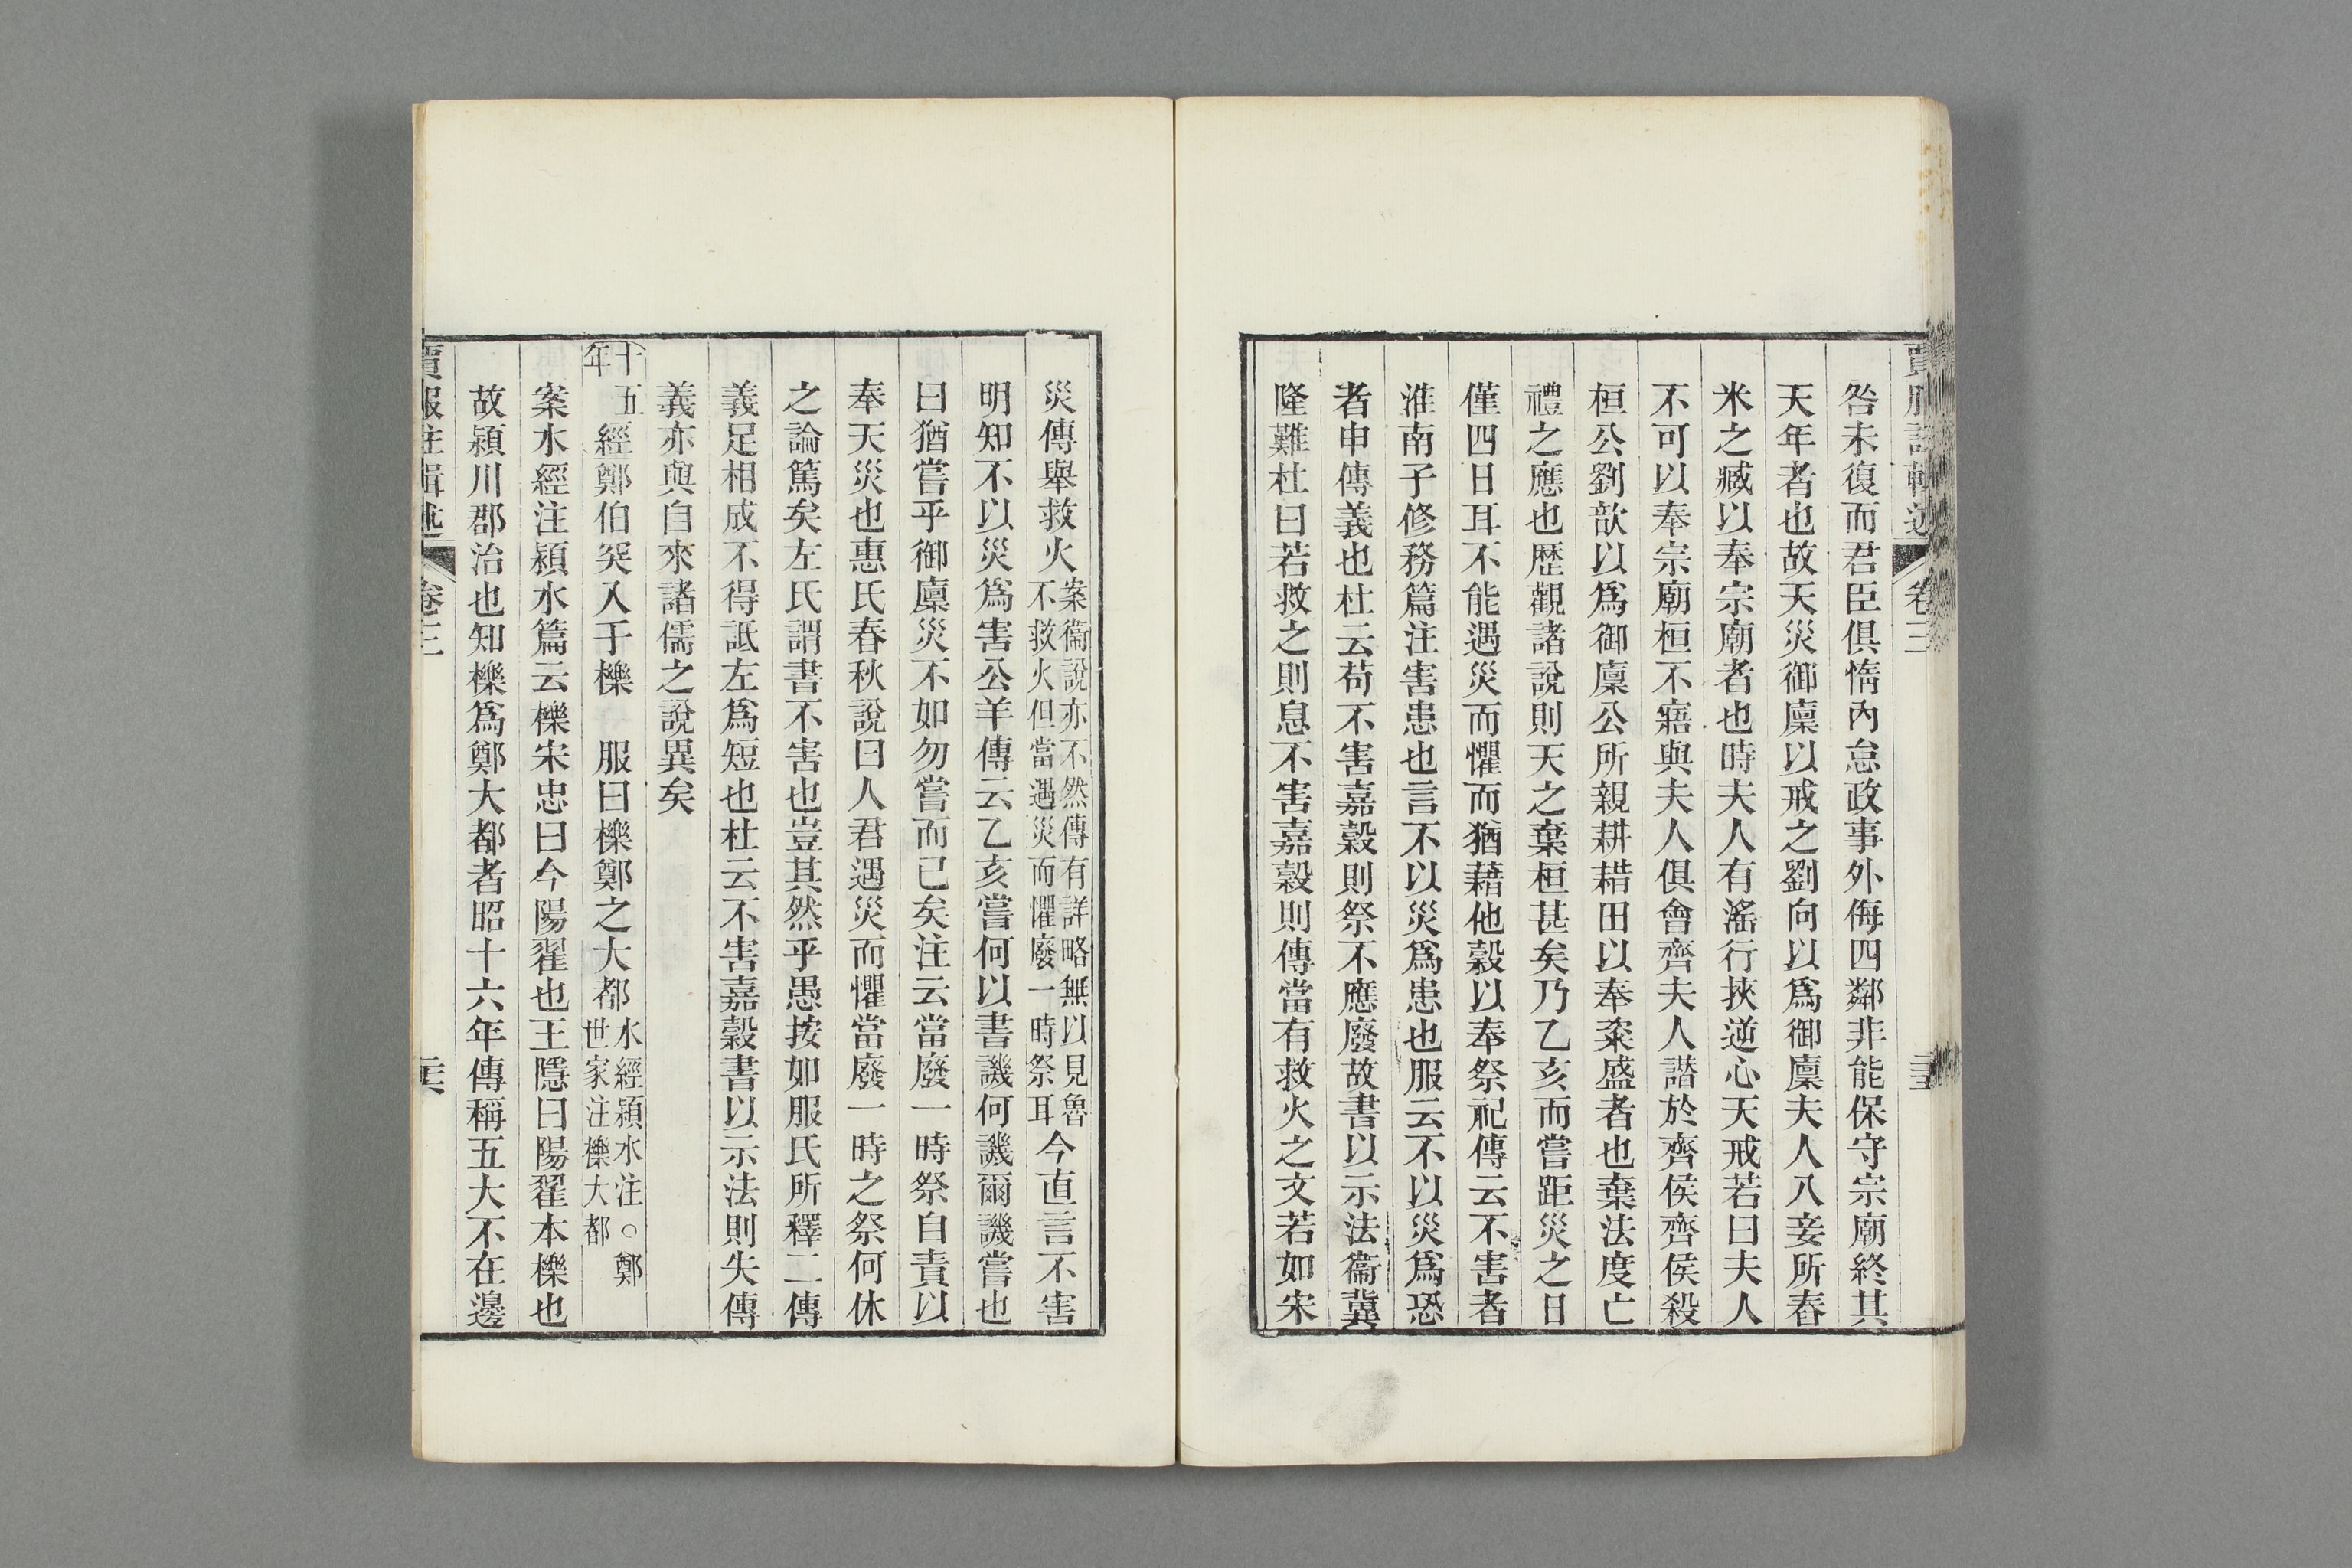 咎未復而君臣俱惰內怠政事外侮四鄰非能保守宗廟終其
天年者也故天災御廩以戒之劉向以爲御廩夫人八妾所舂
米之臧以奉宗廟者也時夫人有淫行挾逆心天戒若曰夫人
不可以奉宗廟桓不寤與夫人俱會齊夫人譖於齊侯齊侯殺
桓公劉歆以爲御廩公所親耕耤田以奉粢盛者也棄法度亡
禮之應也歷觀諸說則天之棄桓甚矣乃乙亥而嘗距災之日
僅四日耳不能遇災而懼而猶藉他穀以奉祭祀傳云不害者
淮南子修務篇注害患也言不以災爲患也服云不以災爲恐
者申傳義也杜云苟不害嘉穀則祭不應廢故書以示法衞冀
隆難杜曰若救之則息不害嘉穀則傳當有救火之文若如宋
災傳舉救火案衞說亦不然傳有詳略無以見魯不救火但當遇災而懼廢一時祭耳今直言不害
明知不以災爲害公羊傳云乙亥嘗何以書譏何譏爾譏嘗也
曰猶嘗乎御廩災不如勿嘗而已矣注云當廢一時祭自責以
奉天災也惠氏春秋說曰人君遇災而懼當廢一時之祭何休
之論篤矣左氏謂書不害也豈其然乎愚按如服氏所釋二傳
義足相成不得詆左爲短也杜云不害嘉穀書以示法則失傳
義亦與自來諸儒之說異矣
十五年 經鄭伯突入于櫟 服曰櫟鄭之大都水經潁水注○鄭世家注櫟大都
案水經注潁水篇云櫟宋忠曰今陽翟也王隱曰陽翟本櫟也
故潁川郡治也知櫟爲鄭大都者昭十六年傳稱五大不在邊
賈服注輯述 卷三